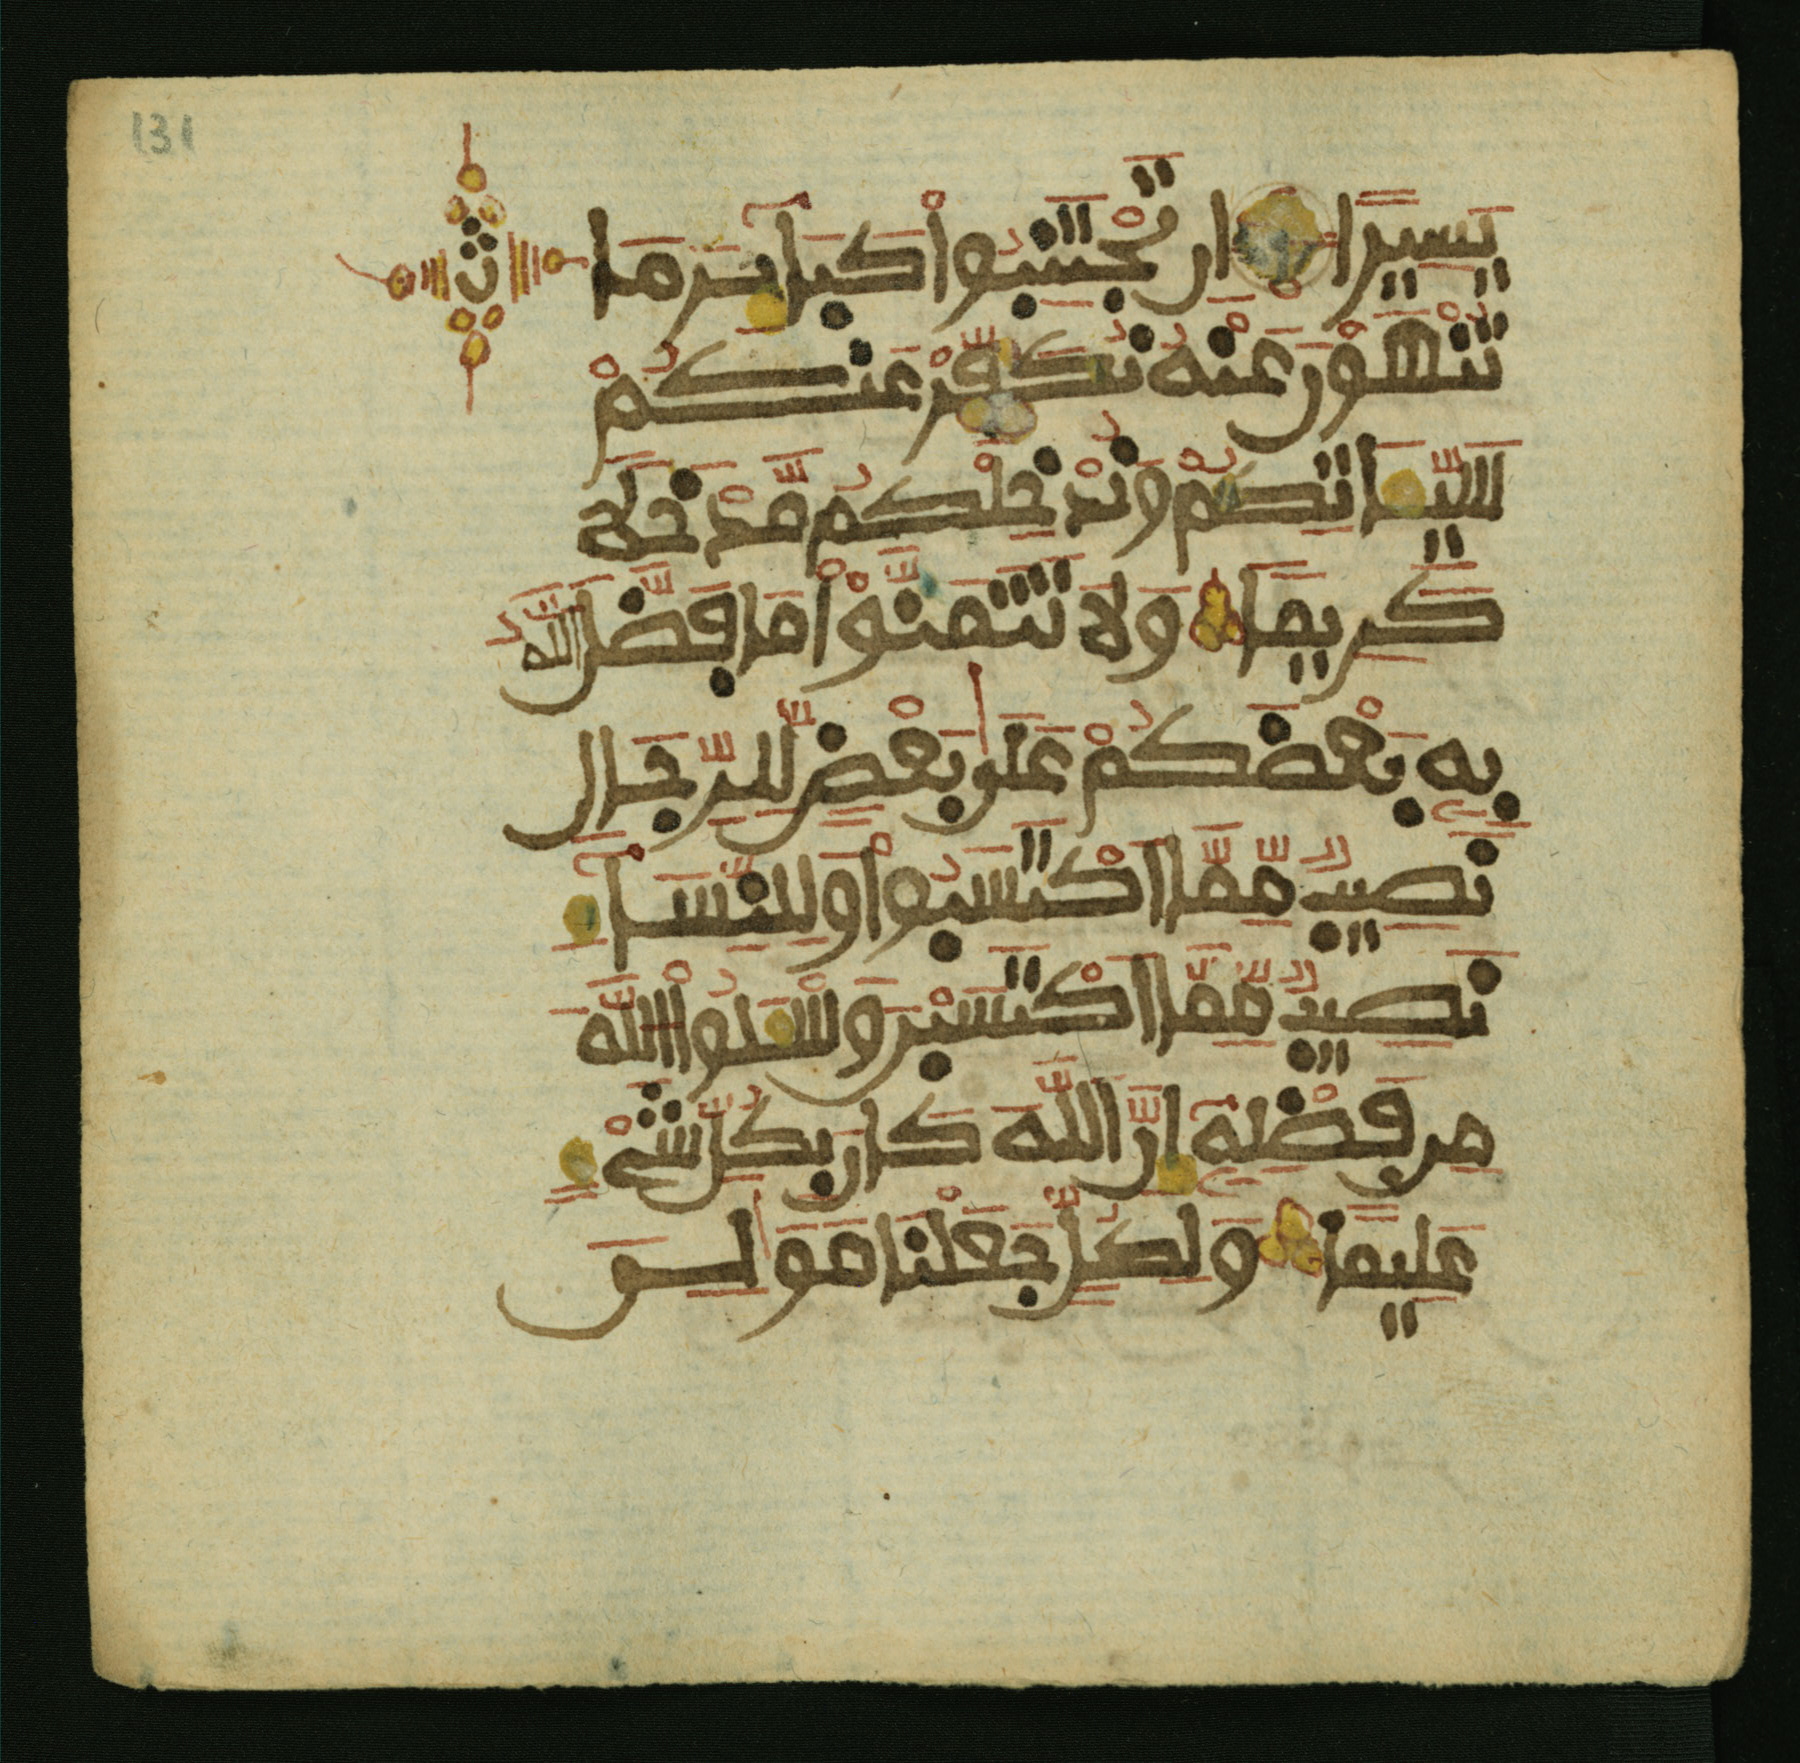 131
يَسِيرًا اِن تَجْتَنِبُواْ كَبَآئِرَ مَا
ث
تُنْهَوْنَ عَنْهُ نُكَفِّرْ عَنكُمْ
سَيِّـَٔاتِكُمْ وَنُدْخِلْكُم مَّدْخَلًا
كَرِيمًا وَلَا تَتَمَنَّوْاْ مَا فَضَّلَ اللَّهُ
بِهِ بَعْضَكُمْ عَلَىٰ بَعْضٍ لِّلرِّجَالِ
نَصِيبٌ مِّمَّا اكْتَسَبُواْ وَلِلنِّسَآءِ
نَصِيبٌ مِّمَّا اكْتَسَبْنَ وَسْـَٔلُواْ اللَّهَ
مِن فَضْلِهِ إِنَّ اللَّهَ كَانَ بِكُلِّ شَيْءٍ
عَلِيمًا وَلِكُلٍّ جَعَلْنَا مَوَالِىَ